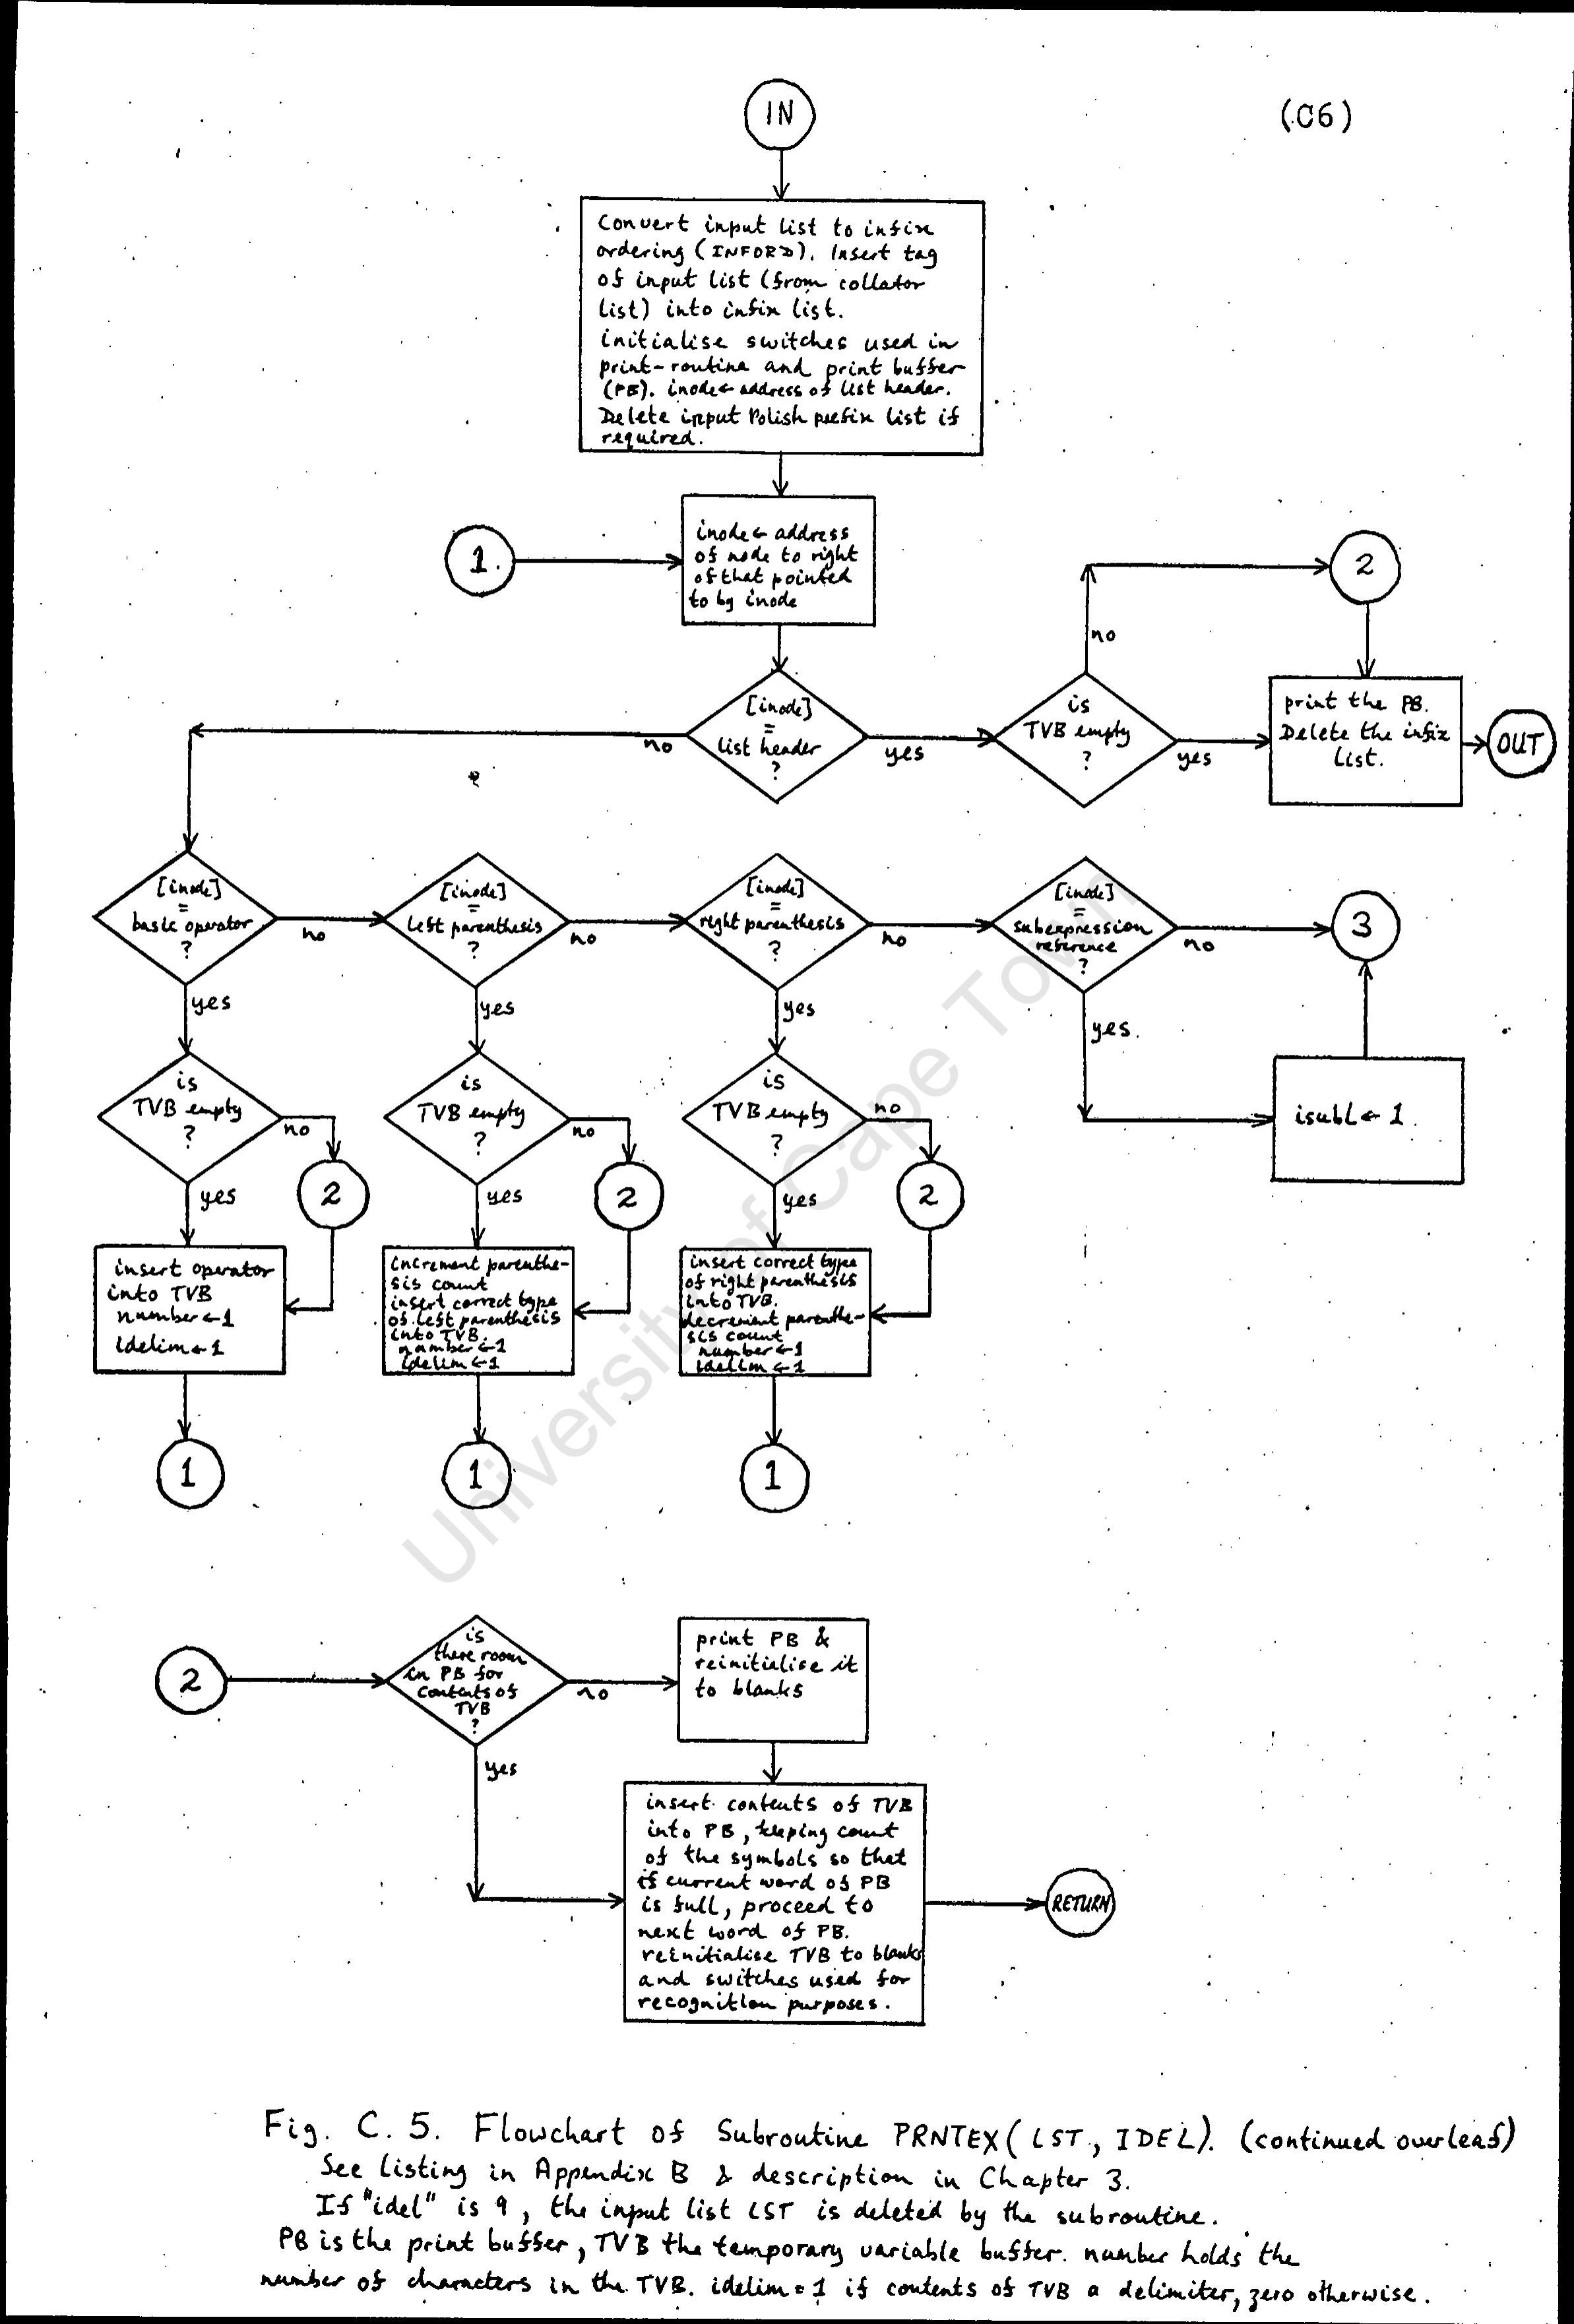 IN
(C6)
Convert input list to infix
ordering (INFORD). Insert tag
of input list (from collator
list) into infix list.
initialise switches used in
print-routine and print buffer
(PB). inode← address of list header.
Delete input Polish prefix list if
required.
1.
inode← address
of node to right
of that pointed
to by inode
2
no
[inode]
=
list header
?
no
yes
is
TVB empty
?
yes
print the PB.
Delete the infix
list.
OUT
[inode]
=
basic operator
?
no
yes
[inode]
=
left parenthesis
?
no
yes
[inode]
=
right parenthesis
?
no
yes
[inode]
=
subexpression
reference
?
no
yes.
3
isubl← 1.
is
TVB empty
?
no
yes
2
is
TVB empty
?
no
yes
2
is
TVB empty
?
no
yes
2
insert operator
into TVB
number←1
idelim←1
increment parenthe-
sis count
insert correct type
of left parenthesis
into TVB.
number←1
idelim←1
insert correct type
of right parenthesis
into TVB.
decrement parenthe-
sis count
number←1
idelim←1
1
1
1
University of Cape Town
2
is
there room
in PB for
contents of
TVB
?
no
yes
print PB &
reinitialise it
to blanks
insert contents of TVB
into PB, keeping count
of the symbols so that
if current word of PB
is full, proceed to
next word of PB.
reinitialise TVB to blanks
and switches used for
recognition purposes.
RETURN
Fig. C. 5. Flowchart of Subroutine PRNTEX( LST, IDEL). (continued overleaf)
See listing in Appendix B & description in Chapter 3.
If "idel" is 9, the input list LST is deleted by the subroutine.
PB is the print buffer, TVB the temporary variable buffer. number holds the
number of characters in the TVB. idelim=1 if contents of TVB a delimiter, zero otherwise.